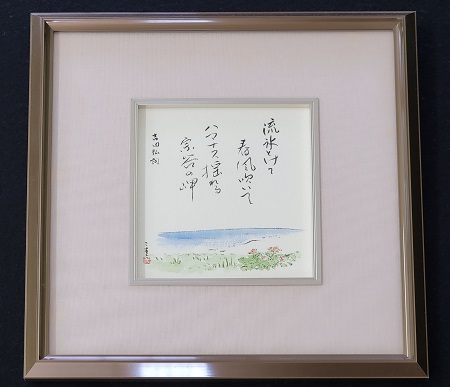 流氷とけて
春風吹いて
ハマナス揺れる
宗谷の岬
吉田弘詞